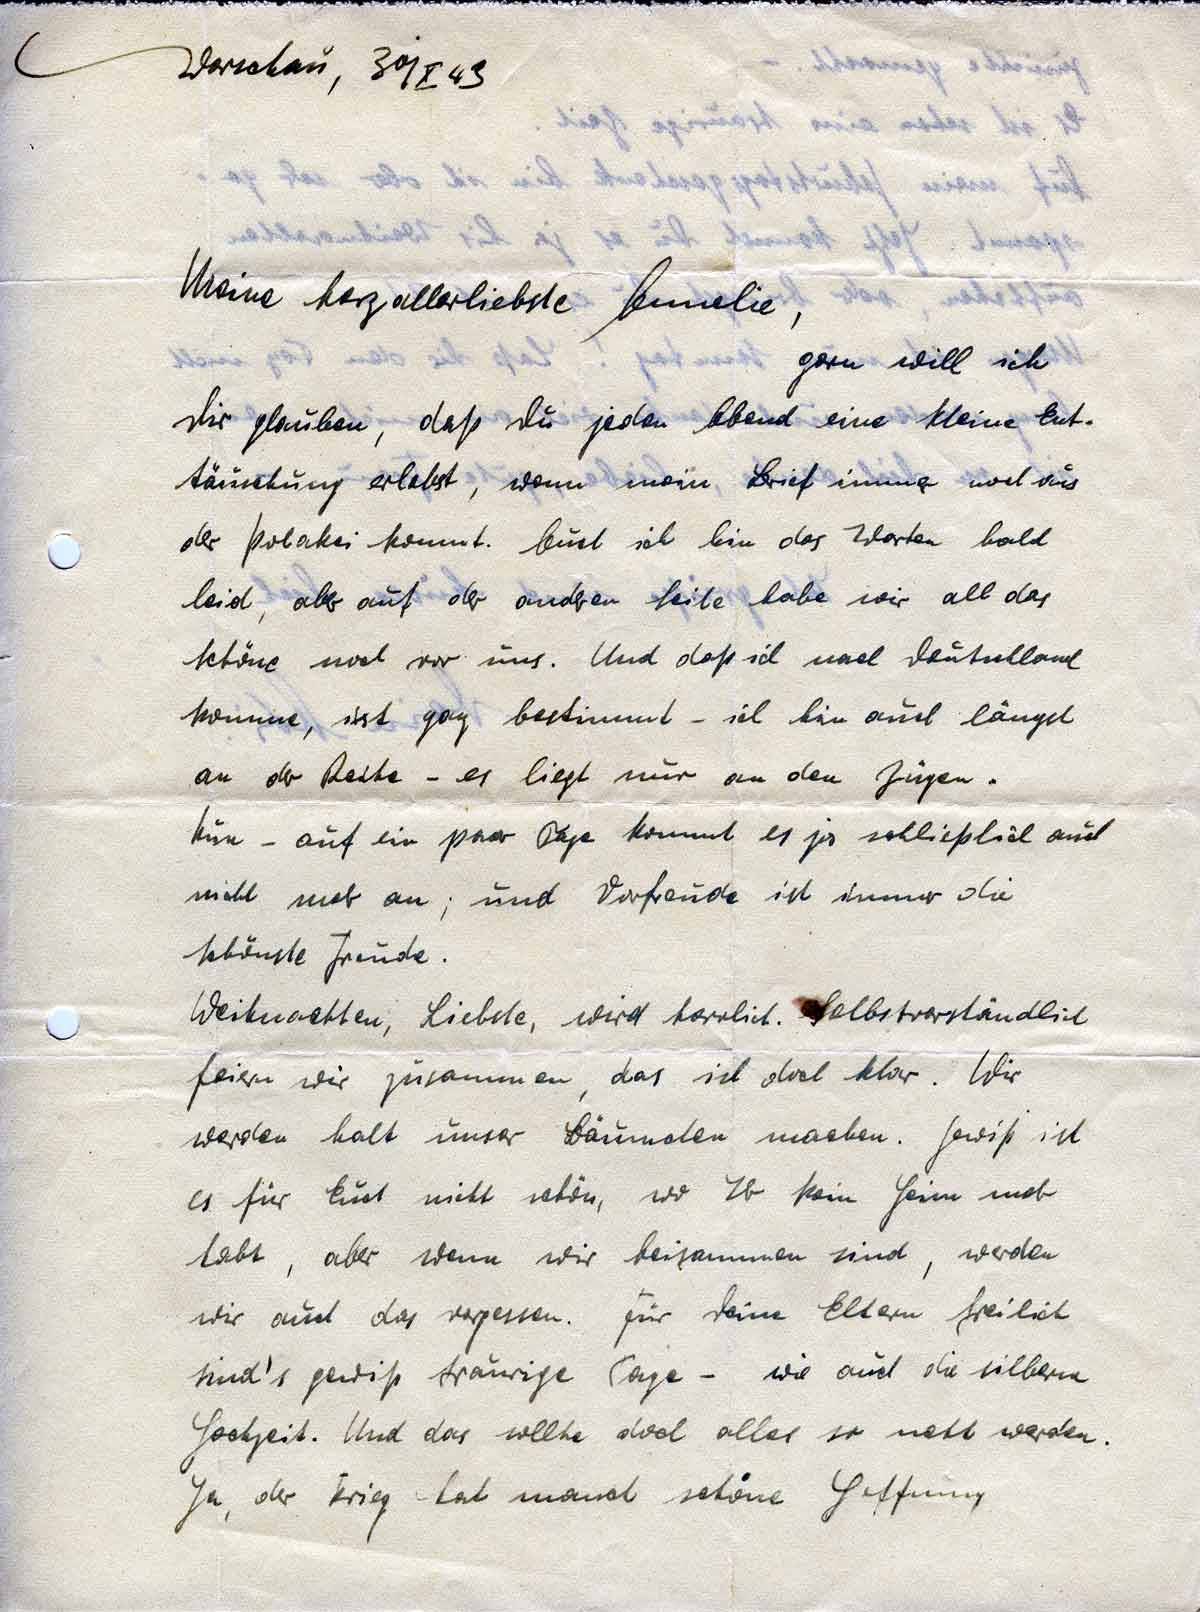 Warschau, 30/X 43
Meine herzallerliebste Annelie,
gern will ich
Dir glauben, daß Du jeden Abend eine kleine Ent-
täuschung erlebst, wenn mein Brief immer noch aus
der Polakei kommt. Auch ich bin das Warten bald
leid, aber auf der anderen Seite habe wir all das
Schöne noch vor uns. Und daß ich nach Deutschland
komme, ist ganz bestimmt – ich bin auch längst
an der Reihe – es liegt nur an den Zügen.
Nun – auf ein paar Tage kommt es ja schließlich auch
nicht mehr an; und Vorfreude ist immer die
schönste Freude.
Weihnachten, Liebste, wird herrlich. Selbstverständlich
feiern wir zusammen, das ist doch klar. Wir
werden halt unser Bäumchen machen. Gewiß ist
es für Euch nicht schön, wo Ihr kein Heim mehr
habt, aber wenn wir beisammen sind, werden
wir auch das vergessen. Für Deine Eltern freilich
sind's gewiß traurige Tage – wie auch die silberne
Hochzeit. Und das sollte doch alles so nett werden.
Ja, der Krieg hat manch schöne Hoffnung